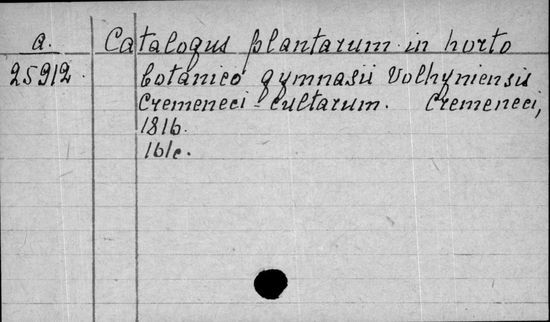 a. Catalogus plantarum in horto
25912. botanico gymnasii Volhyniensis
Cremeneci cultarum. Cremeneci,
1816.
161c.